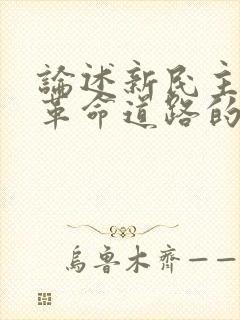 論述新民主
革命道路的
烏魯木齊——